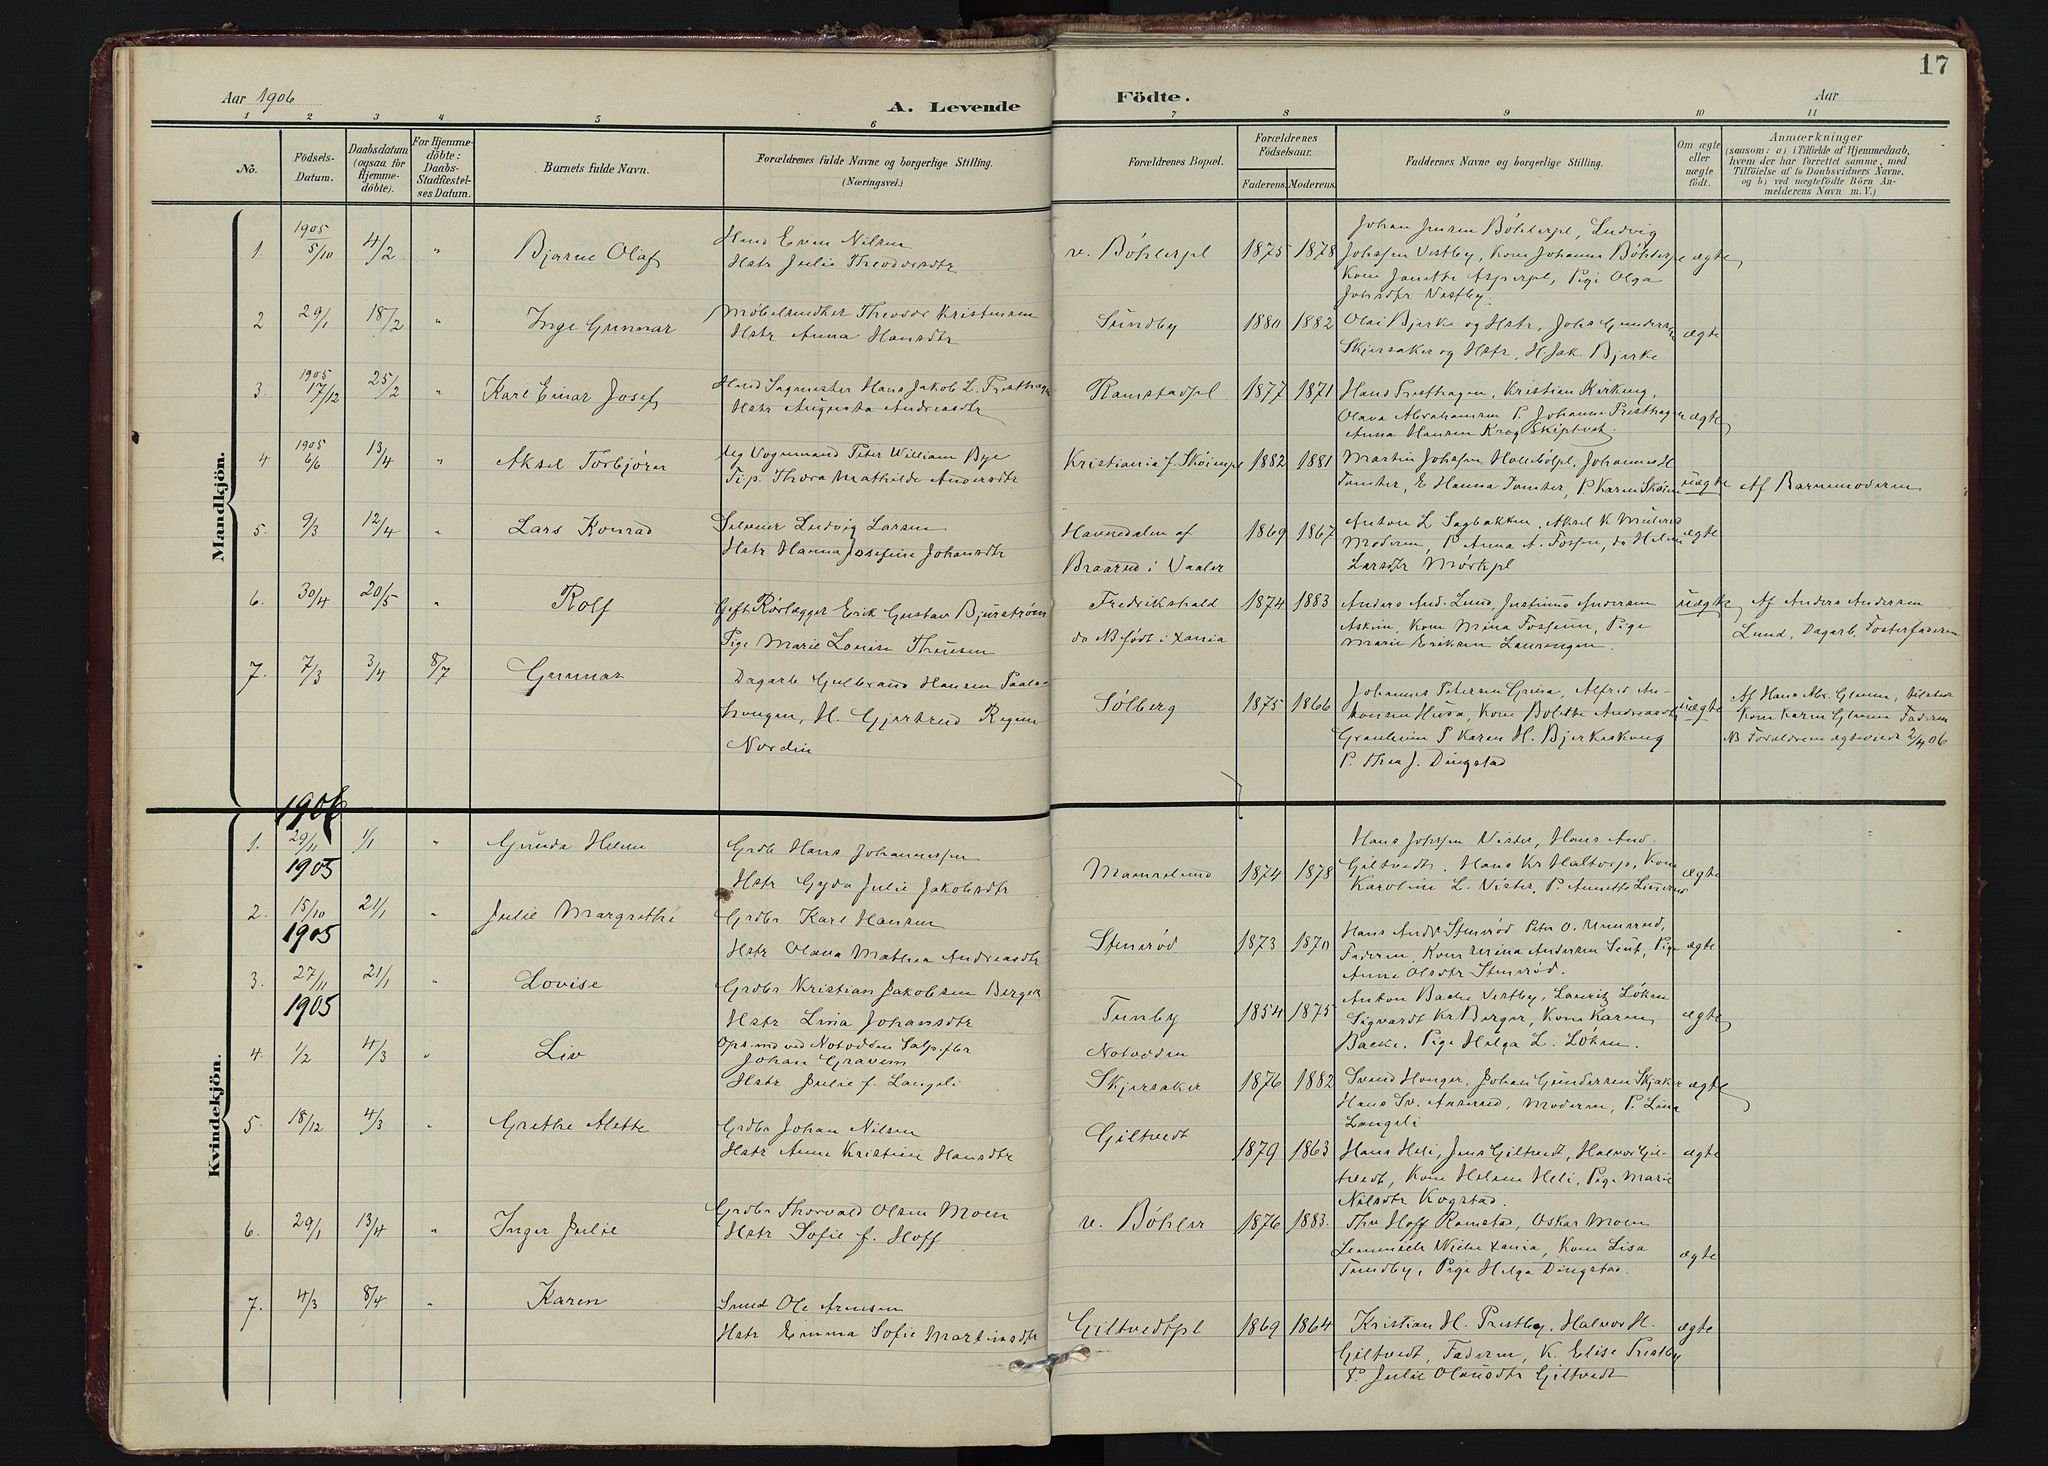 17
Aar 1906
A. Levende
Födte.
Aar
1 2 3 4 5 6 7 8 9 10 11
No.
Födsels-
Datum.
Daabsdatum
(ogsaa for
Hjemme-
döbte).
For Hjemme-
döbte:
Daabs-
Stadfæstel-
ses Datum.
Barnets fulde Navn.
Forældrenes fulde Navne og borgerlige Stilling.
(Næringsvei.)
Forældrenes Bopæl.
Forældrenes
Födselsaar.
Faderens. Moderens.
Faddernes Navne og borgerlige Stilling.
Om ægte
eller
uægte
födt.
Anmærkninger
(saasom: a) i Tilfælde af Hjemmedaab,
hvem der har forrettet samme, med
Tilföielse af to Daabsvidners Navne.
og b) ved uægtefödte Börn An-
melderens Navn m. V.)
Mandkjön.
1. 1905 5/10 4/2 " Bjarne Olaf
Husmd Even Nilsen
Hstr Julie Theodorsdtr
v. Böhlerpl 1875 1878
Johan Jensen Böhlerpl, Ludvig
Johssen Vestby, Kone Johanne Böhlerpl
Kone Janette Asperpl, Pige Olga
Johsdtr Vestby.
ægte
2 29/1 18/2 " Inge Gunnar
Möbelsnedker Theodor Kristensen
Hstr Anna Hansdtr
Sundby 1880 1882
Olai Bjerke og Hstr, Johs Gundersen
Skjersaker og Hstr, H. Jak. Bjerke
ægte
3. 1905 17/12 25/2 " Karl Einar Josef
Husmd Sagmester Hans Jakob L. Presthagen
Hstr Augusta Andreasdtr
Ramstadpl 1877 1871
Hans Presthagen, Kristian Kirkeng,
Olava Abrahamsen P. Johanne Presthagen
Anna Hansen Krog Skiptvet.
ægte
4 1905 6/6 13/4 " Aksel Torbjörn
Ug Vognmand Peter William Bye
Tj.p. Thora Mathilde Andersdtr
Kristiania f. Sköienpl 1882 1881
Martin Johssen Hollebölpl, Johannes H
Tomter, E Hanna Tomter, P. Karen Sköien
uægte
Af Barnemoderen
5. 9/3 12/4 " Lars Konrad
Selveier Ludvig Larsen
Hstr Hanna Josefine Johansdtr
Havnedalen af
Braarud i Vaaler
1869 1867
Anton L Sagbakken, Aksel K Mulerud
Moderen, P. Anna A. Fossen, do Helene
Larsdtr Mörkpl
ægte
6. 30/4 20/5 " Rolf
Gift Rörlægger Erik Gustav Bjurström
Pige Marie Lovise Thuesen
Fredrikshald
do NB födt i Xania
1874 1883
Anders And. Lund, Justinus Andersen
Askim, Kone Mina Fossum, Pige
Marie Eriksen Laurengen.
uægte
Af Anders Andersen
Lund, Dagarb, Fosterfaderen
7. 7/3 3/4 8/7 Gunnar
Dagarb Gulbrand Hansen Paals-
kougen, H. Gjertrud Regine
Nordin
Sölberg 1875 1866
Johannes Petersen Grina, Alfred An-
tonsen Husa, Kone Bolette Andreasdtr
Granheim P Karen H. Bjerkeskoug
P. Thea J. Dingstad
uægte
Af Hans Abr. Glenne, tilstede
Kone Karen Glenne Faderen
NB Forældrene ægteviede 2/4 06
Kvindekjön.
1906
1. 29/11 1905 1/1 " Gunda Helene
Grdb Hans Johannessen
Hstr Gyda Julie Jakobsdtr
Mamrelund 1874 1878
Hans Johssen Vister, Hans And.
Giltvedt, Hans Kr Haltorp, Kone
Karoline L. Vister, P. Annette Linnerud
ægte
2. 15/10 1905 21/1 " Julie Margrethe
Grdbr Karl Hansen
Hstr Olava Mathea Andreasdtr
Stenröd 1873 1870
Hans Ands Stenröd Peter O. Unnerud,
Faderen, Kone Mina Andersen Sent, Pige
Anne Olsdtr Stenröd.
ægte
3. 27/11 1905 21/1 " Lovise
Grdbr Kristian Jakobsen Berger
Hstr Lina Johansdtr
Tunby 1854 1875
Anton Backe Vestby, Lauritz Löken
Sigvardt Kr Berger, Kone Karen
Backe, Pige Helga L. Löken.
ægte
4. 1/2 4/3 " Liv
Ops.md ved Notodden Salp.fbr
Johan Gravem
Hstr Julie f. Langeli
Notodden
Skjersaker 1876 1882
Svend Honger, Johan Gundersen Skjaker
Hans Sv. Auserud, Moderen, P. Lina
Langeli
ægte
5. 18/12 4/3 " Grethe Alette
Grdbr Johan Nilsen
Hstr Anne Kristine Hansdtr
Giltvedt 1879 1863
Hans Heli, Jens Giltvedt, Halvor Gil-
tvedt, Kone Helene Heli, Pige Marie
Nilsdtr Kogstad.
ægte
6. 29/1 13/4 " Inger Julie
Grdbr Thorvald Olsen Moen
Hstr Sofie f. Hoff
v. Böhler 1876 1883.
Thv Hoff Ramstad, Oskar Moen
Xania, Kone Lisa
Sundby, Pige Helga Dingstad.
ægte
7. 4/3 8/4 " Karen
Smed Ole Arnesen
Hstr Emma Sofie Martinsdtr
Giltvedtpl 1869 1864
Kristian H. Prestby, Halvor H.
Giltvedt, Faderen, K. Elise Prestby
P. Julie Olausdtr Giltvedt
ægte